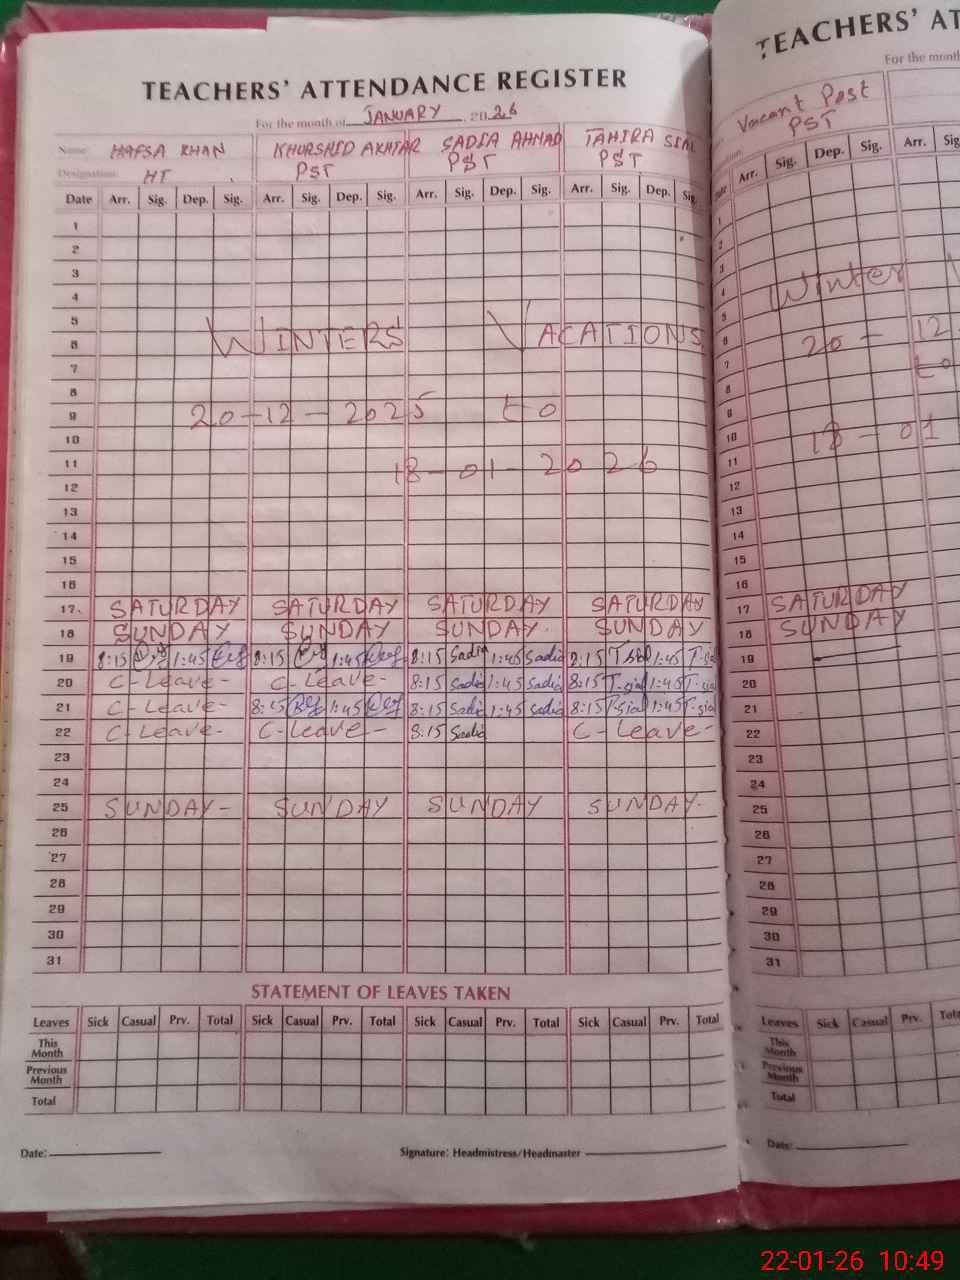 TEACHERS' ATTENDANCE REGISTER
For the month of JANUARY, 2026
Name: HAFSA KHAN KHURSHID AKHTAR SADIA AHMAD TAHIRA SIAL
Designation: HT PST PST PST
Date Arr. Sig. Dep. Sig. Arr. Sig. Dep. Sig. Arr. Sig. Dep. Sig. Arr. Sig. Dep. Sig.
1
2
3
4
5
6 WINTERS VACATIONS
7
8
9 20-12-2025 to
10
11 18-01-2026
12
13
14
15
16
17. SATURDAY SATURDAY SATURDAY SATURDAY
18 SUNDAY SUNDAY SUNDAY. SUNDAY
19 8:15 1:45 8:15 1:45 8:15 Sadia 1:45 Sadia 8:15 T.sial 1:45 T.sial
20 C-Leave- C-Leave- 8:15 Sadia 1:45 Sadia 8:15 T.sial 1:45 T.sial
21 C-Leave- 8:15 1:45 8:15 Sadia 1:45 Sadia 8:15 T.sial 1:45 T.sial
22 C-Leave- C-Leave- 8:15 Sadia C-Leave-
23
24
25 SUNDAY- SUNDAY SUNDAY SUNDAY.
26
27
28
29
30
31
STATEMENT OF LEAVES TAKEN
Leaves Sick Casual Prv. Total Sick Casual Prv. Total Sick Casual Prv. Total Sick Casual Prv. Total
This Month
Previous Month
Total
Date: Signature: Headmistress/Headmaster
TEACHERS' AT
For the month
Vacant Post
PST
Date Arr. Sig. Dep. Sig. Arr.
1
2
3
4 Winter
5
6 20-12
7 to
8
9
10 18-01
11
12
13
14
15
16
17 SATURDAY
18 SUNDAY
19
20
21
22
23
24
25
26
27
28
29
30
31
Leaves Sick Casual Prv.
This Month
Previous Month
Total
Date:
22-01-26 10:49